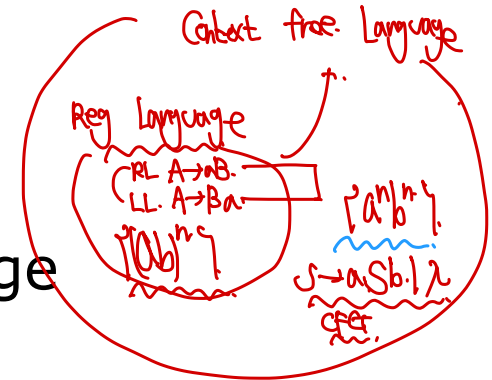 Context free. Language
Reg Language
RL A→aB.
LL. A→Ba.
{(ab)ⁿ}.
{aⁿbⁿ}.
S→aSb.|λ
CFG.
ge